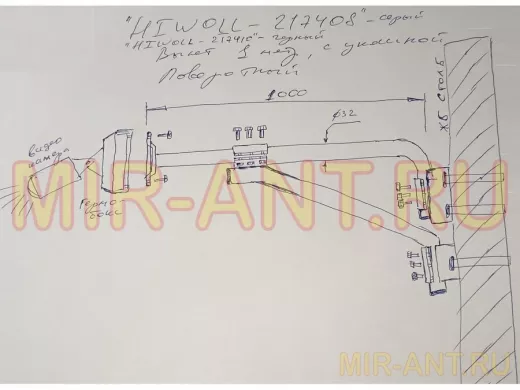 "HIWOLL - 217408" - серый
"HIWOLL - 217410" - черный
Вылет 1 метр, с укосиной
Поворотный
1000
Ф32
ЖБ СТОЛБ
видео
камера
термо
бокс
MIR-ANT.RU
MIR-ANT.RU